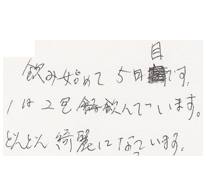 飲み始めて5日目です。
1日2包飲んでいます。
どんどん綺麗になっています。